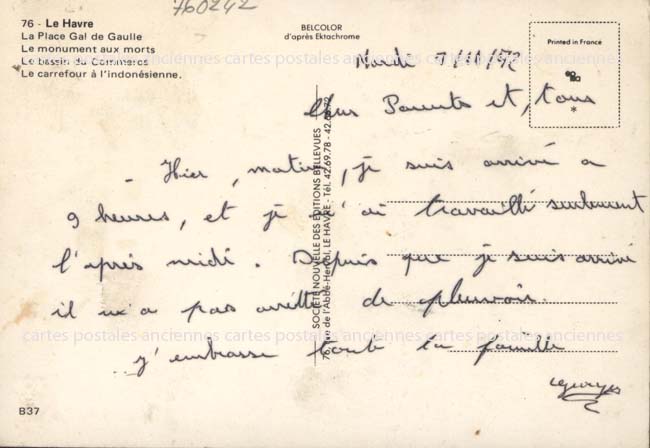 760242
76 - Le Havre
La Place Gal de Gaulle
Le monument aux morts
Le bassin du Commerce
Le carrefour à l'indonésienne.
BELCOLOR
d'après Ektachrome
Printed in France
Mardi 7/11/72
Chers Parents et, tous
*
- Hier, matin, je suis arrivé a
9 heures, et je n'ai travaillé seulement
l'après midi. Depuis que je suis arrivé
il n'a pas arrêtté de pleuvoir.
j'embrasse toute la famille
Georges
SOCIÉTÉ NOUVELLE DES ÉDITIONS BELLEVUES
LE HAVRE - Tél. 42.69.78 - 42.69.72
cartes postales anciennes cartes postales anciennes cartes postales anciennes
cartes postales anciennes cartes postales anciennes cartes postales anciennes
B37